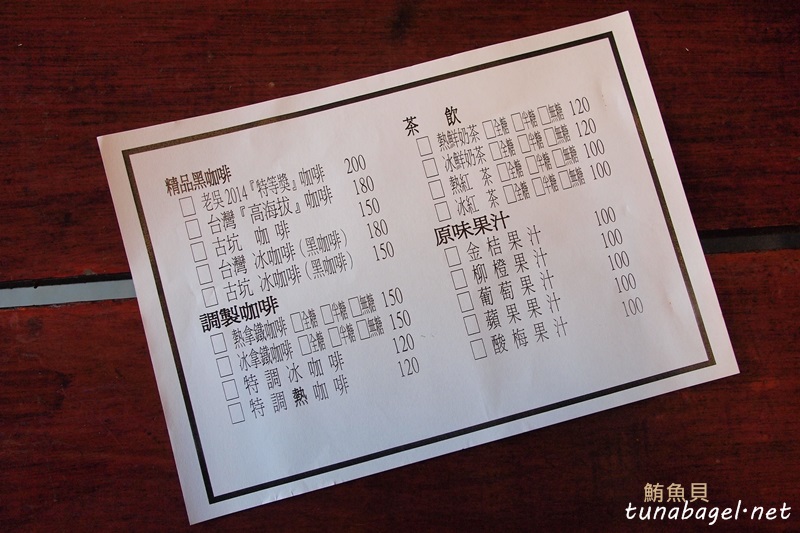 精品黑咖啡
□ 老吳2014『特等獎』咖啡 200
□ 台灣『高海拔』咖啡 180
□ 古坑 咖啡 150
□ 台灣 冰咖啡(黑咖啡) 180
□ 古坑 冰咖啡(黑咖啡) 150
調製咖啡
□ 熱拿鐵咖啡 □全糖 □半糖 □無糖 150
□ 冰拿鐵咖啡 □全糖 □半糖 □無糖 150
□ 特調冰咖啡 120
□ 特調熱咖啡 120
茶飲
□ 熱鮮奶茶 □全糖 □半糖 □無糖 120
□ 冰鮮奶茶 □全糖 □半糖 □無糖 120
□ 熱紅茶 □全糖 □半糖 □無糖 100
□ 冰紅茶 □全糖 □半糖 □無糖 100
原味果汁
□ 金桔果汁 100
□ 柳橙果汁 100
□ 葡萄果汁 100
□ 蘋果果汁 100
□ 酸梅果汁 100
鮪魚貝
tunabagel.net